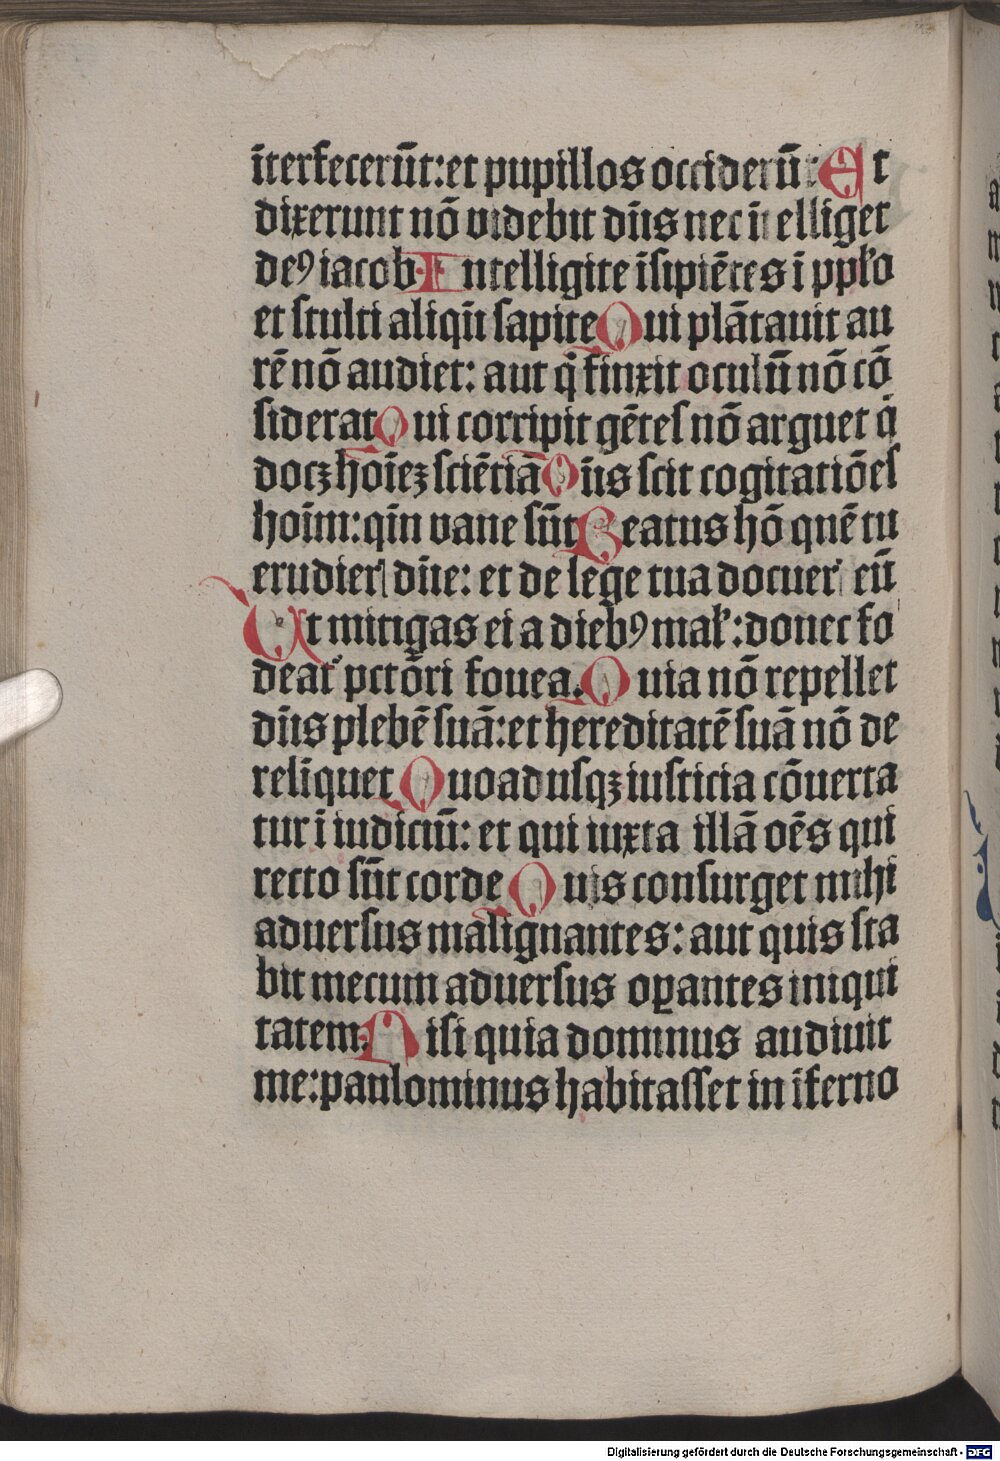 īterfecerūt:et pupillos occiderū: Et
dixerunt nō videbit dn̄s nec ītelliget
deꝰ iacob Intelligite īsipiētes ī ppło
et stulti aliqn̄ sapite Qui plātauit au
rē nō audiet: aut q̇ finxit oculū nō cō
siderat Qui corripit gētes nō arguet q̇
docꝫ hoīeꝫ sciētiā Dn̄s scit cogitatiōes
hoīm:qm̄ vane sūt Beatus hō quē tu
erudieri dn̄e: et de lege tua docueri eū
Ut mitigas ei a diebꝰ mał:donec fo
deat᷑ pctōri fouea. Quia nō repellet
dn̄s plebē suā:et hereditatē suā nō de
relīquet Quoadusqꝫ iusticia cōuerta
tur ī iudiciū: et qui iuxta illā oēs qui
recto sūt corde Quis consurget mihi
aduersus malignantes: aut quis sta
bit mecum aduersus oꝑantes iniqui
tatem. Nisi quia dominus audiuit
me:paulominus habitasset in īferno
Digitalisierung gefördert durch die Deutsche Forschungsgemeinschaft - DFG